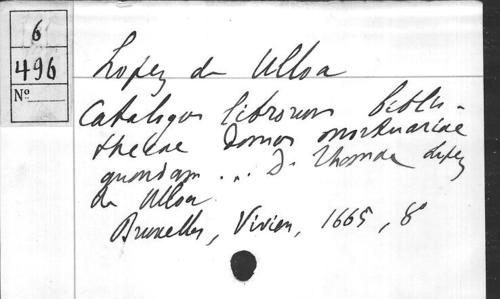 6
496
Nº
Lopez de Ulloa
Catalogus librorum biblio-
thecae domus mortuariae
quondam ... D. Thomae Lopez
de Ulloa.
Bruxelles, Vivien, 1665, 8º